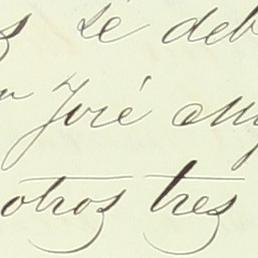 se deb
José
otros tres